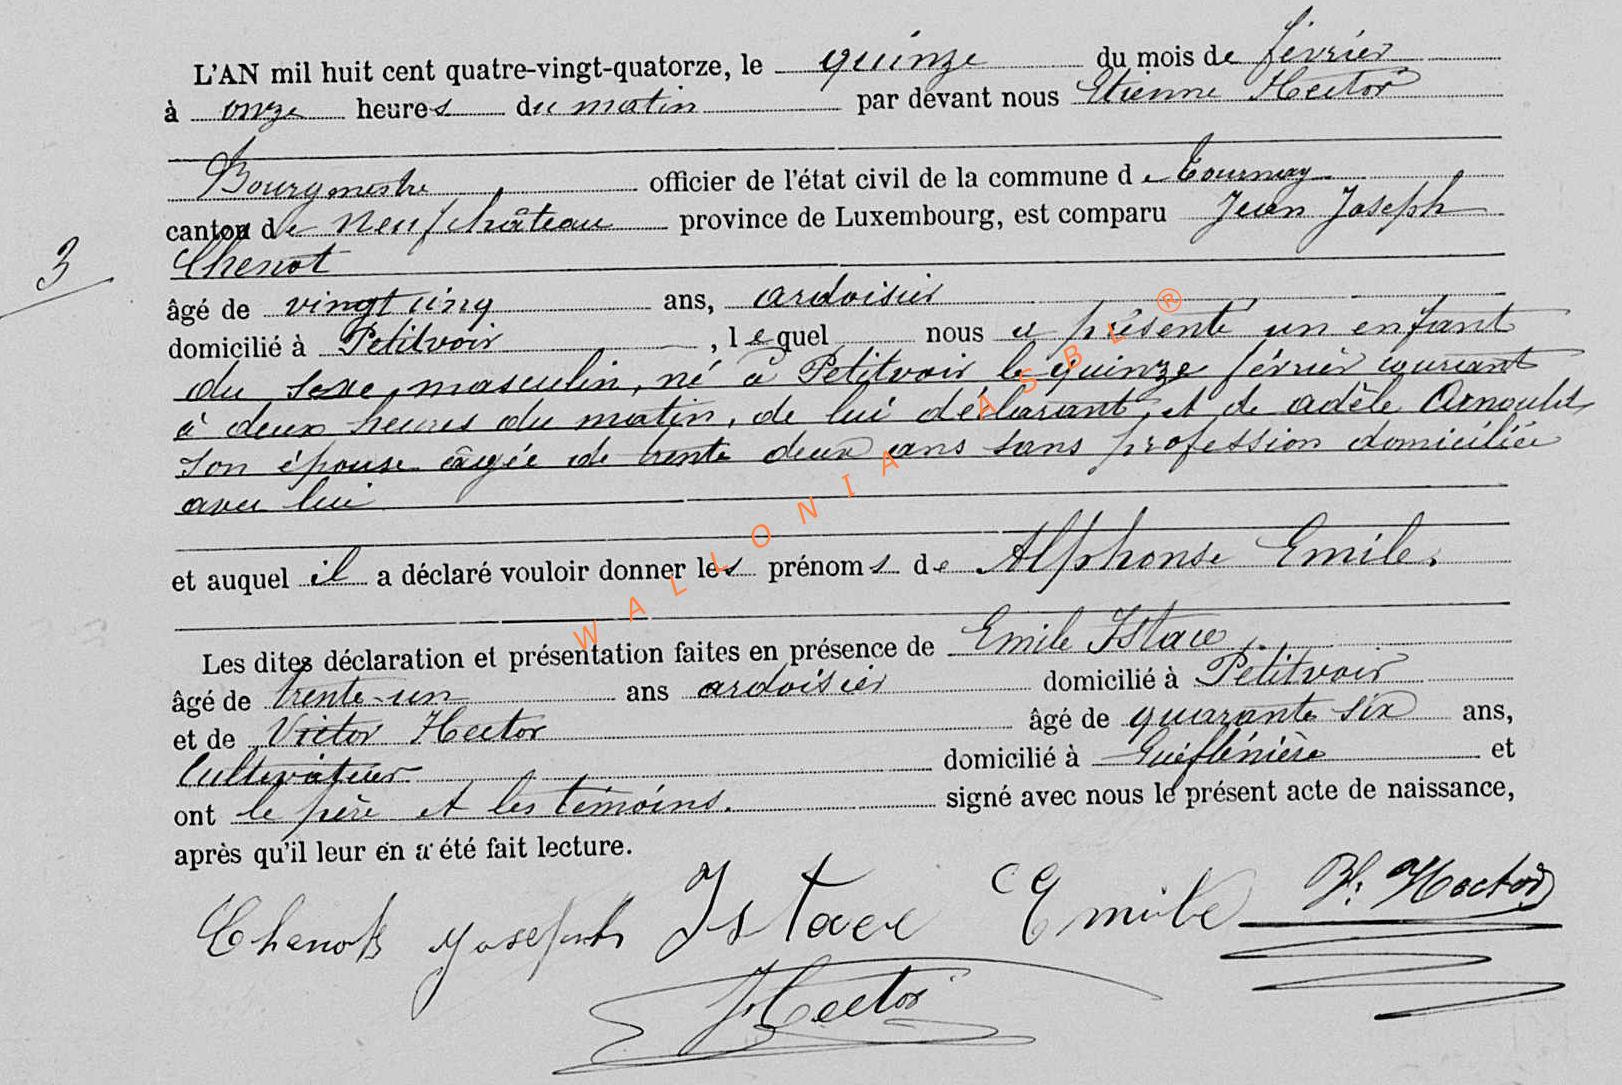 L'AN mil huit cent quatre-vingt-quatorze, le quinze du mois de février
à onze heures du matin par devant nous Etienne Hector
Bourgmestre officier de l'état civil de la commune de Tournay
canton de Neufchâteau province de Luxembourg, est comparu Jean Joseph
3
Chenot
âgé de vingt cinq ans, ardoisier
domicilié à Petitvoir, lequel nous a présenté un enfant
du sexe masculin, né à Petitvoir le quinze février courant
à deux heures du matin, de lui déclarant, et de adèle Arnould,
son épouse âgée de trente deux ans sans profession domiciliée
avec lui
et auquel il a déclaré vouloir donner les prénoms de Alphonse Emile.
Les dites déclaration et présentation faites en présence de Emile Istace
âgé de trente-un ans ardoisier domicilié à Petitvoir
et de Victor Hector âgé de quarante six ans,
Cultivateur domicilié à et
ont le père et les témoins. signé avec nous le présent acte de naissance,
après qu'il leur en a été fait lecture.
Chenot Joseph Istace Emile Hector
Hector
WALLONIA ASBL ®